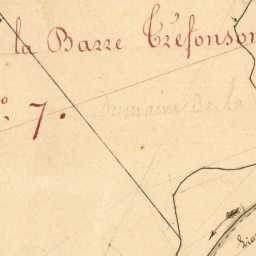 la Barre Tréfonson
o. 7.
Domaine de la